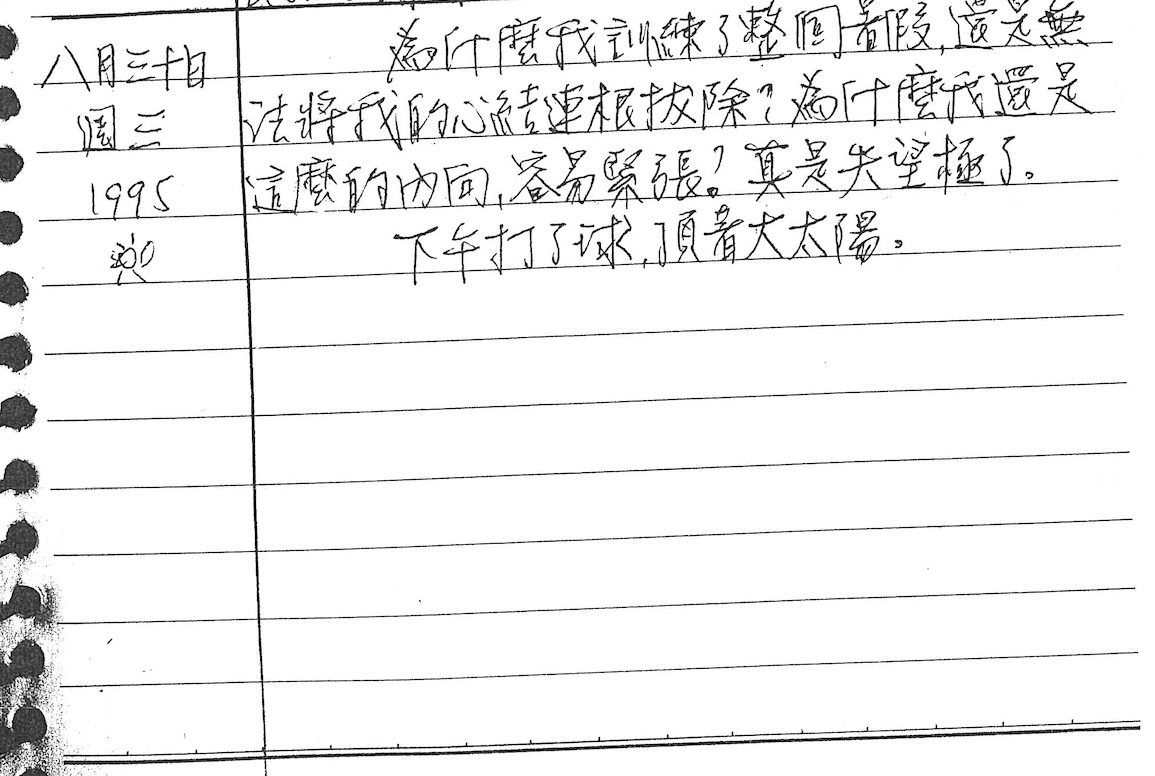 八月三十日
週三
1995
為什麼我訓練了整個暑假,還是無
法將我的心結連根拔除?為什麼我還是
這麼的內向,容易緊張?真是失望極了。
下午打了球,頂著大太陽。